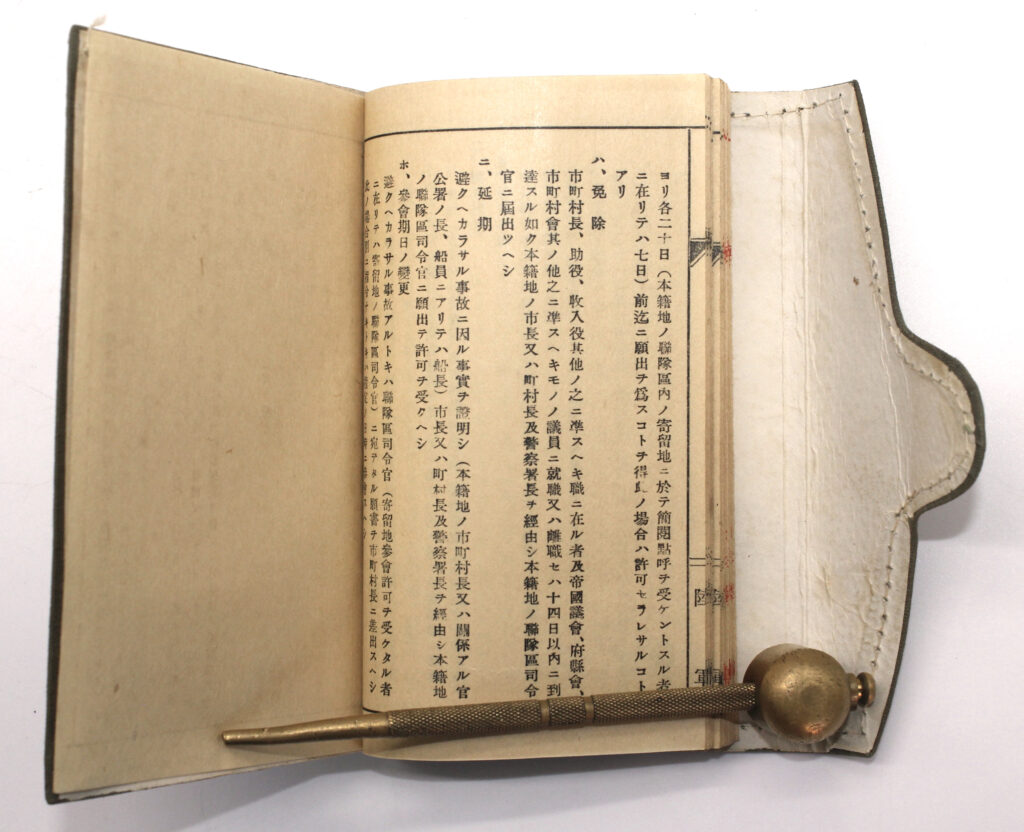 ヨリ各二十日(本籍地ノ聯隊區內ノ寄留地ニ於テ簡閱點呼ヲ受ケントスル者
ニ在リテハ七日)前迄ニ願出ヲ爲スコトヲ得ノ場合ハ許可セラレサルコト
アリ
ハ、免除
市町村長、助役、收入役其他ノ之ニ準スヘキ職ニ在ル者及帝國議會、府縣會、
市町村會其ノ他之ニ準スヘキモノノ議員ニ就職又ハ離職セハ十四日以內ニ到
達スル如ク本籍地ノ市長又ハ町村長及警察署長ヲ經由シ本籍地ノ聯隊區司令
官ニ屆出ツヘシ
ニ、延期
避クヘカラサル事故ニ因ル事實ヲ證明シ(本籍地ノ市町村長又ハ關係アル官
公署ノ長、船員ニアリテハ船長)市長又ハ町村長及警察署長ヲ經由シ本籍地
ノ聯隊區司令官ニ願出テ許可ヲ受クヘシ
ホ、參會期日ノ變更
避クヘカラサル事故アルトキハ聯隊區司令官(寄留地參會許可ヲ受ケタル者
ニ在リテハ寄留地ノ聯隊區司令官)ニ宛テタル願書ヲ市町村長ニ差出スヘシ
陸軍